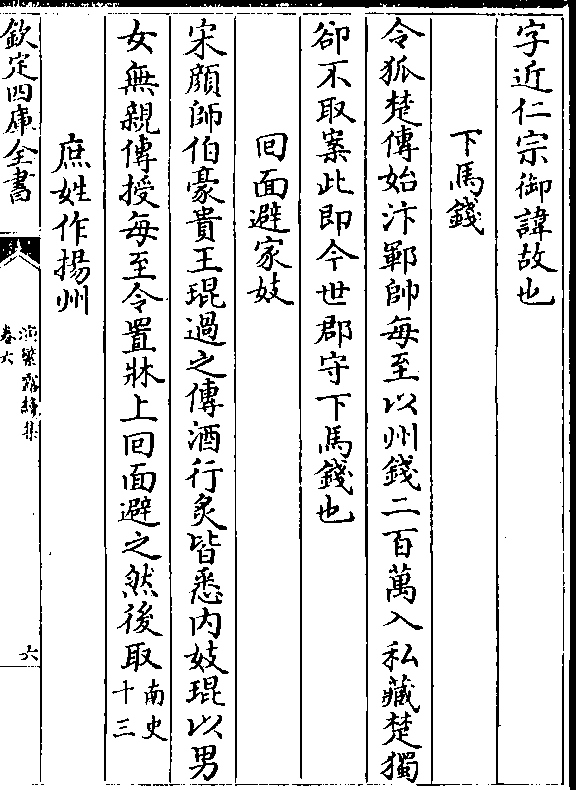 字近仁宗御諱故也
下馬錢
令狐楚傳始汴鄆帥每至以州錢二百萬入私藏楚獨
卻不取案此即今世郡守下馬錢也
囘面避家妓
宋顔師伯豪貴王琨過之傳酒行炙皆悉内妓琨以男
女無親傳授每至令置牀上囘面避之然後取南史十三
庶姓作揚州
欽定四庫全書
演繁露續集
卷六
六